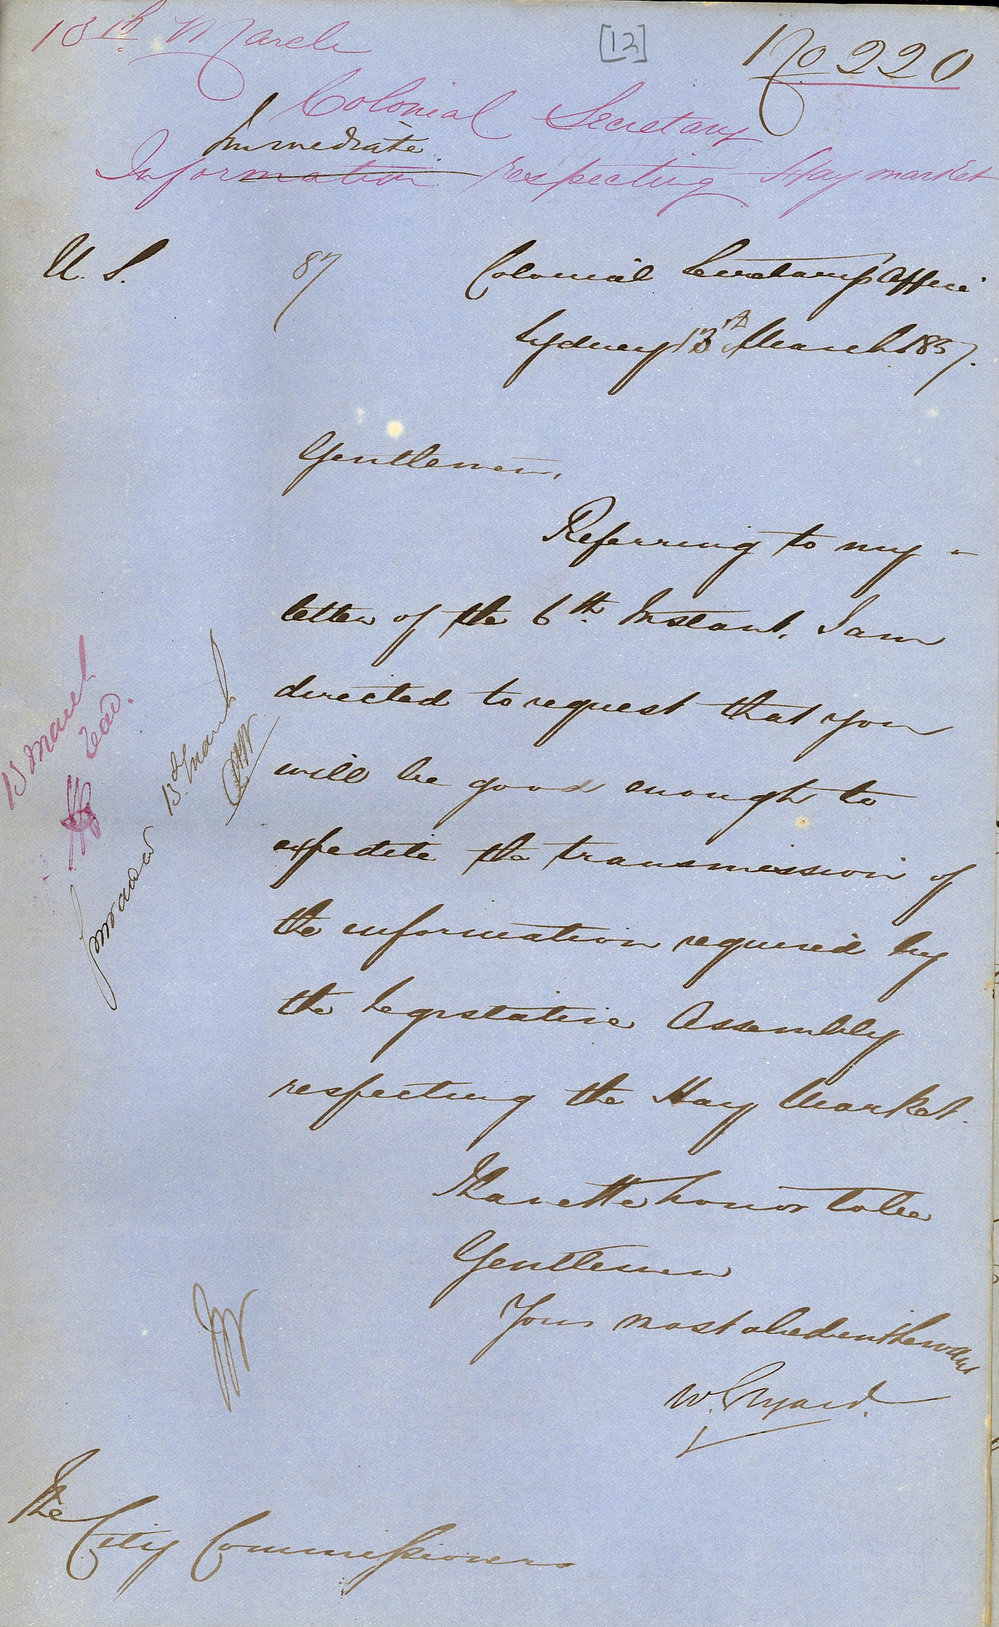 13th March
[12]
No 220
Colonial Secretary
Immediate
Information respecting Haymarket
87
Colonial Secretary's Office
Sydney 13th March 1857.
Gentlemen,
Referring to my
letter of the 6th Instant, I am
directed to request that you
will be good enough to
expedite the transmission of
the information required by
the Legislative Assembly
respecting the Hay Market.
I have the honor to be
Gentlemen
Your most obedient Servant
W. Elyard.
13 March
Read.
13th March
The
City Commissioners